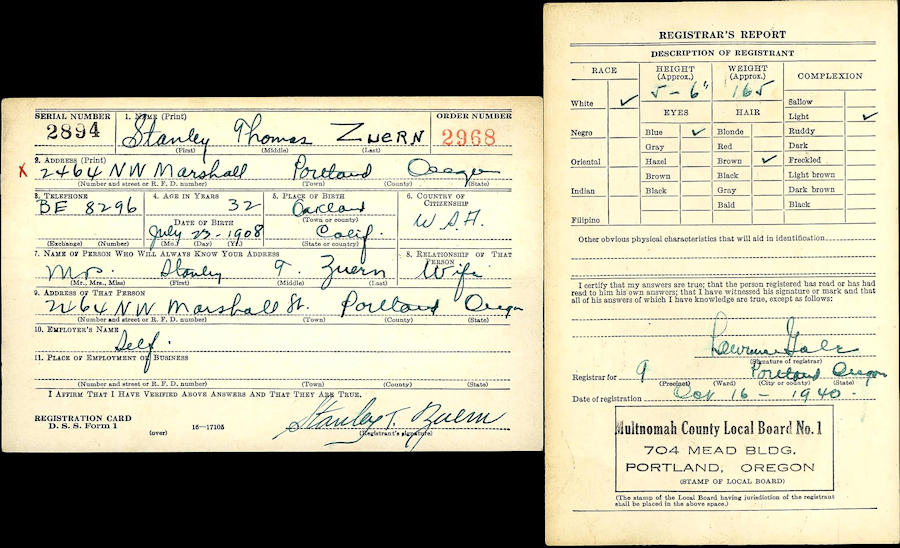 SERIAL NUMBER 1. NAME (Print) ORDER NUMBER
2894 Stanley Thomas ZUERN 2968
(First) (Middle) (Last)
2. ADDRESS (Print)
X 2464 NW Marshall Portland Oregon
(Number and street or R. F. D. number) (Town) (County) (State)
3. TELEPHONE 4. AGE IN YEARS 5. PLACE OF BIRTH 6. COUNTRY OF CITIZENSHIP
BE 8296 32 Oakland U.S.A.
DATE OF BIRTH (Town or county)
July 23-1908 Calif.
(Exchange) (Number) (Mo.) (Day) (Yr.) (State or country)
7. NAME OF PERSON WHO WILL ALWAYS KNOW YOUR ADDRESS 8. RELATIONSHIP OF THAT PERSON
Mrs. Stanley T. Zuern Wife
(Mr., Mrs., Miss) (First) (Middle) (Last)
9. ADDRESS OF THAT PERSON
2464 NW Marshall St. Portland Oregon
(Number and street or R. F. D. number) (Town) (County) (State)
10. EMPLOYER'S NAME
Self.
11. PLACE OF EMPLOYMENT OR BUSINESS
(Number and street or R. F. D. number) (Town) (County) (State)
I AFFIRM THAT I HAVE VERIFIED ABOVE ANSWERS AND THAT THEY ARE TRUE.
REGISTRATION CARD
D. S. S. Form 1 Stanley T. Zuern
(over) 16—17105 (Registrant's signature)
REGISTRAR'S REPORT
DESCRIPTION OF REGISTRANT
RACE HEIGHT (Approx.) WEIGHT (Approx.) COMPLEXION
5-6" 165
White ✓ Sallow
EYES HAIR Light ✓
Negro Blue ✓ Blonde Ruddy
Gray Red Dark
Oriental Hazel Brown ✓ Freckled
Brown Black Light brown
Indian Black Gray Dark brown
Bald Black
Filipino
Other obvious physical characteristics that will aid in identification
I certify that my answers are true; that the person registered has read or has had
read to him his own answers; that I have witnessed his signature or mark and that
all of his answers of which I have knowledge are true, except as follows:
(Signature of registrar)
Registrar for 9 Portland Oregon
(Precinct) (Ward) (City or county) (State)
Date of registration Oct 16 - 1940.
Multnomah County Local Board No. 1
704 MEAD BLDG.
PORTLAND, OREGON
(STAMP OF LOCAL BOARD)
(The stamp of the Local Board having jurisdiction of the registrant
shall be placed in the above space.)